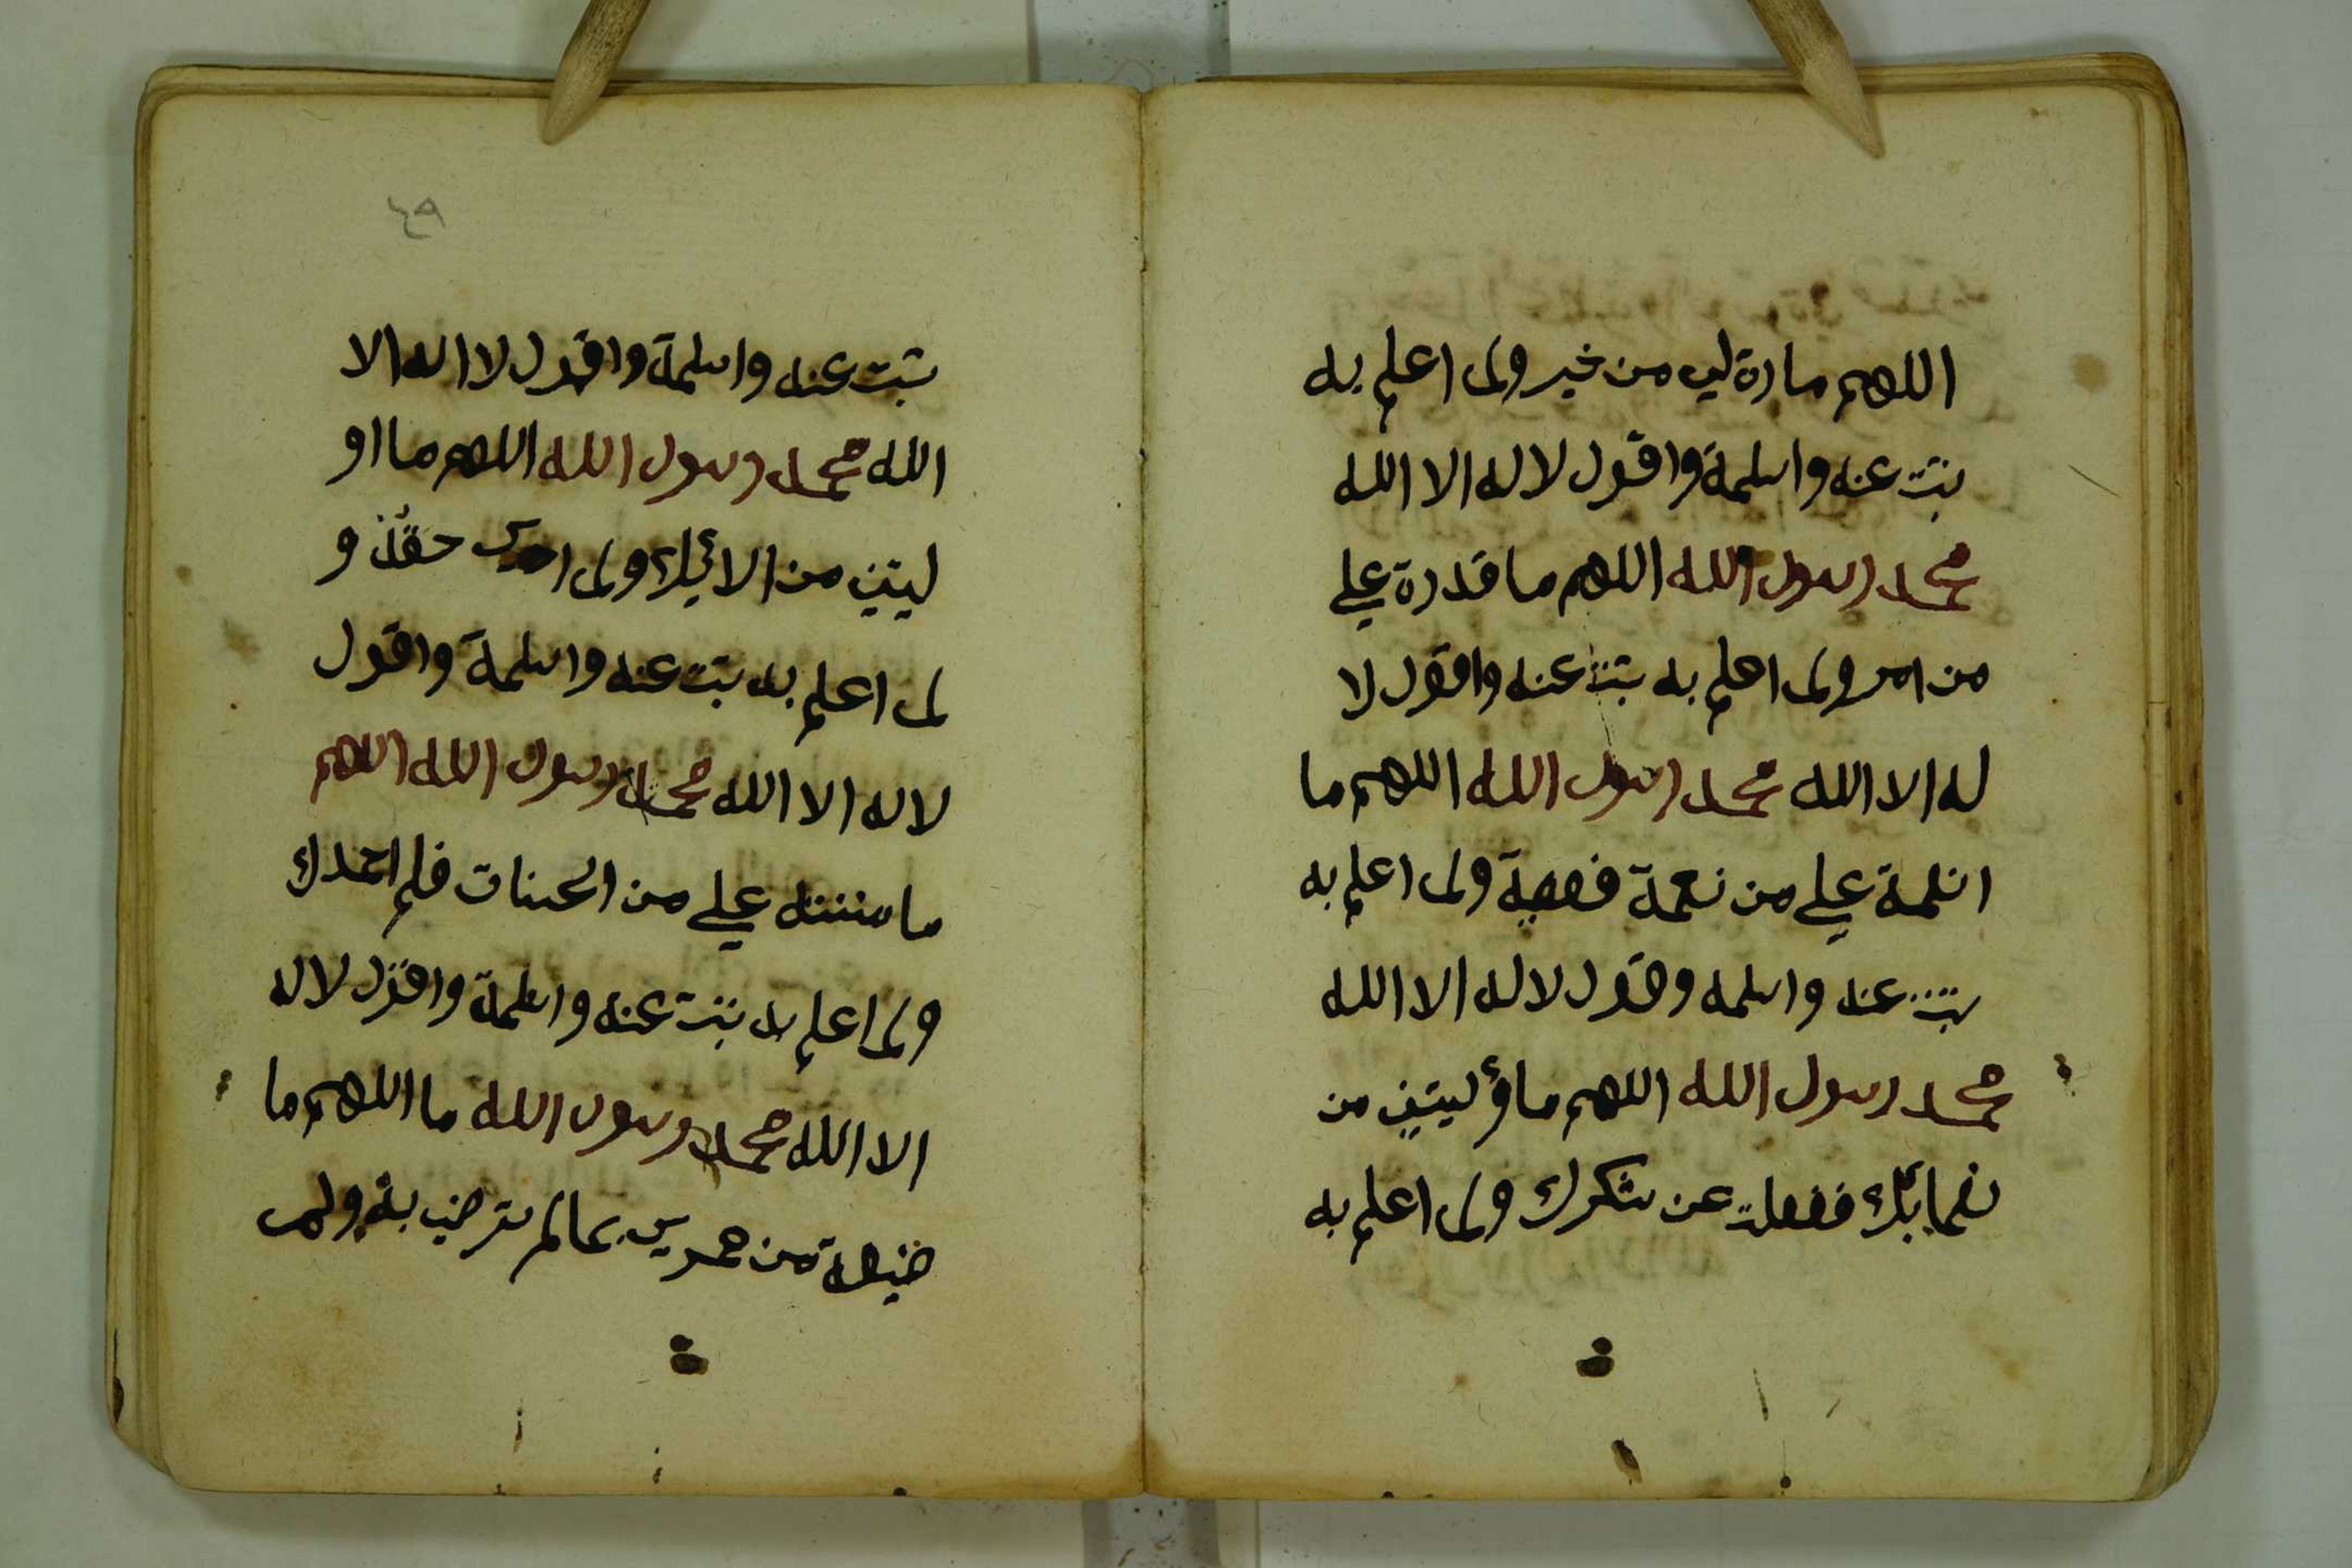 اللهم مارة لي من خير ولم اعلم به
تبت عنه واسلمة واقول لاله الا الله
محمد رسول الله اللهم ما قدرة علي
من امر ولم اعلم به تبت عنه واقول لا
له الا الله محمد رسول الله اللهم ما
انعمة علي من نعمة فعصية ولم اعلم به
تبت عنه واسلمه وقول لاله الا الله
محمد رسول الله اللهم ماؤليتني من
نعمائك فغفلت عن شكرك ولم اعلم به
٤٩
تبت عنه واسلمة واقول لا اله الا
الله محمد رسول الله اللهم ما او
ليتني من الائيك ولم حقك و
لم اعلم به تبت عنه واسلمة واقول
لاله الا الله محمد رسول الله اللهم
ما مننته علي من الحسنات فلم احمدك
ولم اعلم به تبت عنه واسلمة واقول لاله
الا الله محمد رسول الله ما اللهم ما
ضيعة من عمري بمالم ترضي به ولم